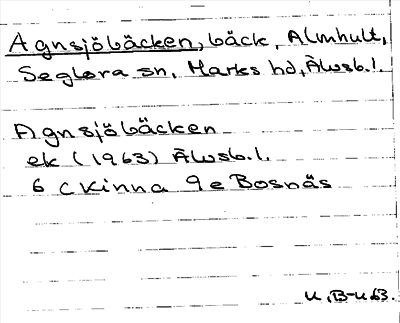 Agnsjöbäcken, bäck, Almhult,
Seglora sn, Marks hd, Älvsb.l.
Agnsjöbäcken
ek (1963) Älvsb.l.
6 C Kinna 9 e Bosnäs
U.B-U 63.